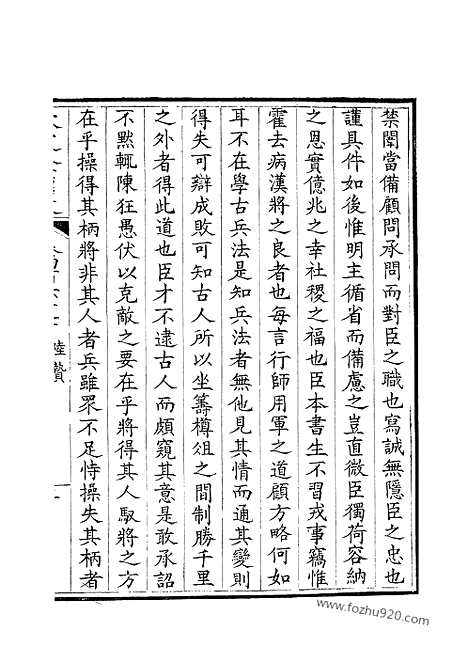 禁闈當備顧問承問而對臣之職也寫誠無隱臣之忠也
謹具件如後惟明主循省而備慮之豈直微臣獨荷容納
之恩實億兆之幸社稷之福也臣本書生不習戎事竊惟
霍去病漢將之良者也每言行師用軍之道顧方略何如
耳不在學古兵法是知兵法者無他見其情而通其變則
得失可辯成敗可知古人所以坐籌樽俎之間制勝千里
之外者得此道也臣才不逮古人而頗窺其意是敢承詔
不黙輒陳狂愚伏以克敵之要在乎將得其人馭將之方
在乎操得其柄將非其人者兵雖眾不足恃操失其柄者
陸贄
www.fozhu920.com